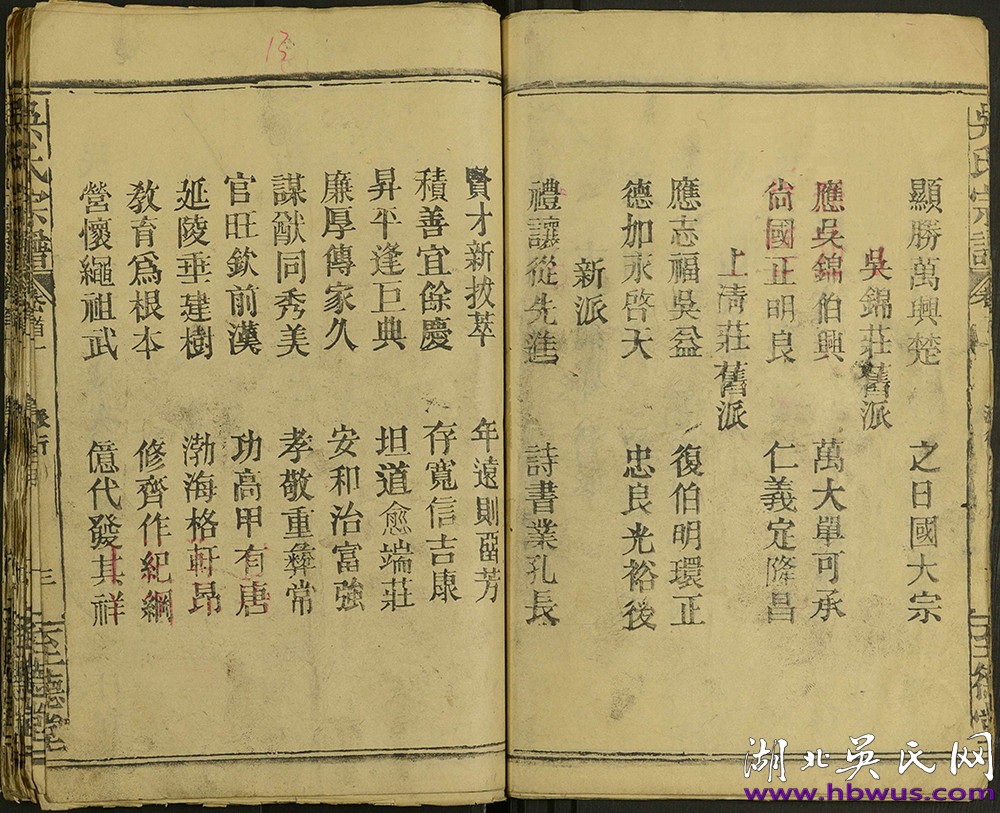 顯勝萬興楚　之日國大宗
吳錦莊舊派
應吳錦伯興　萬大單可承
尙國正明良　仁義定隆昌
上清莊舊派
應志福吳益　復伯明環正
德加永啓天　忠良光裕後
新派
禮讓從先進　詩書業孔長
賢才新拔萃　年遠則
芳
積善宜餘慶　存寬信吉康
昇平逢巨典　坦道愈端莊
廉厚傳家久　安和治富強
謀猷同秀美　孝敬重彝常
官旺欽前漢　功高甲有唐
延陵垂建樹　渤海格軒昂
敎育爲根本　修齊作紀綱
營懷繩祖武　億代發其祥
吳氏宗譜
派行
三
至德堂
13
湖北吳氏网
www.hbwus.com